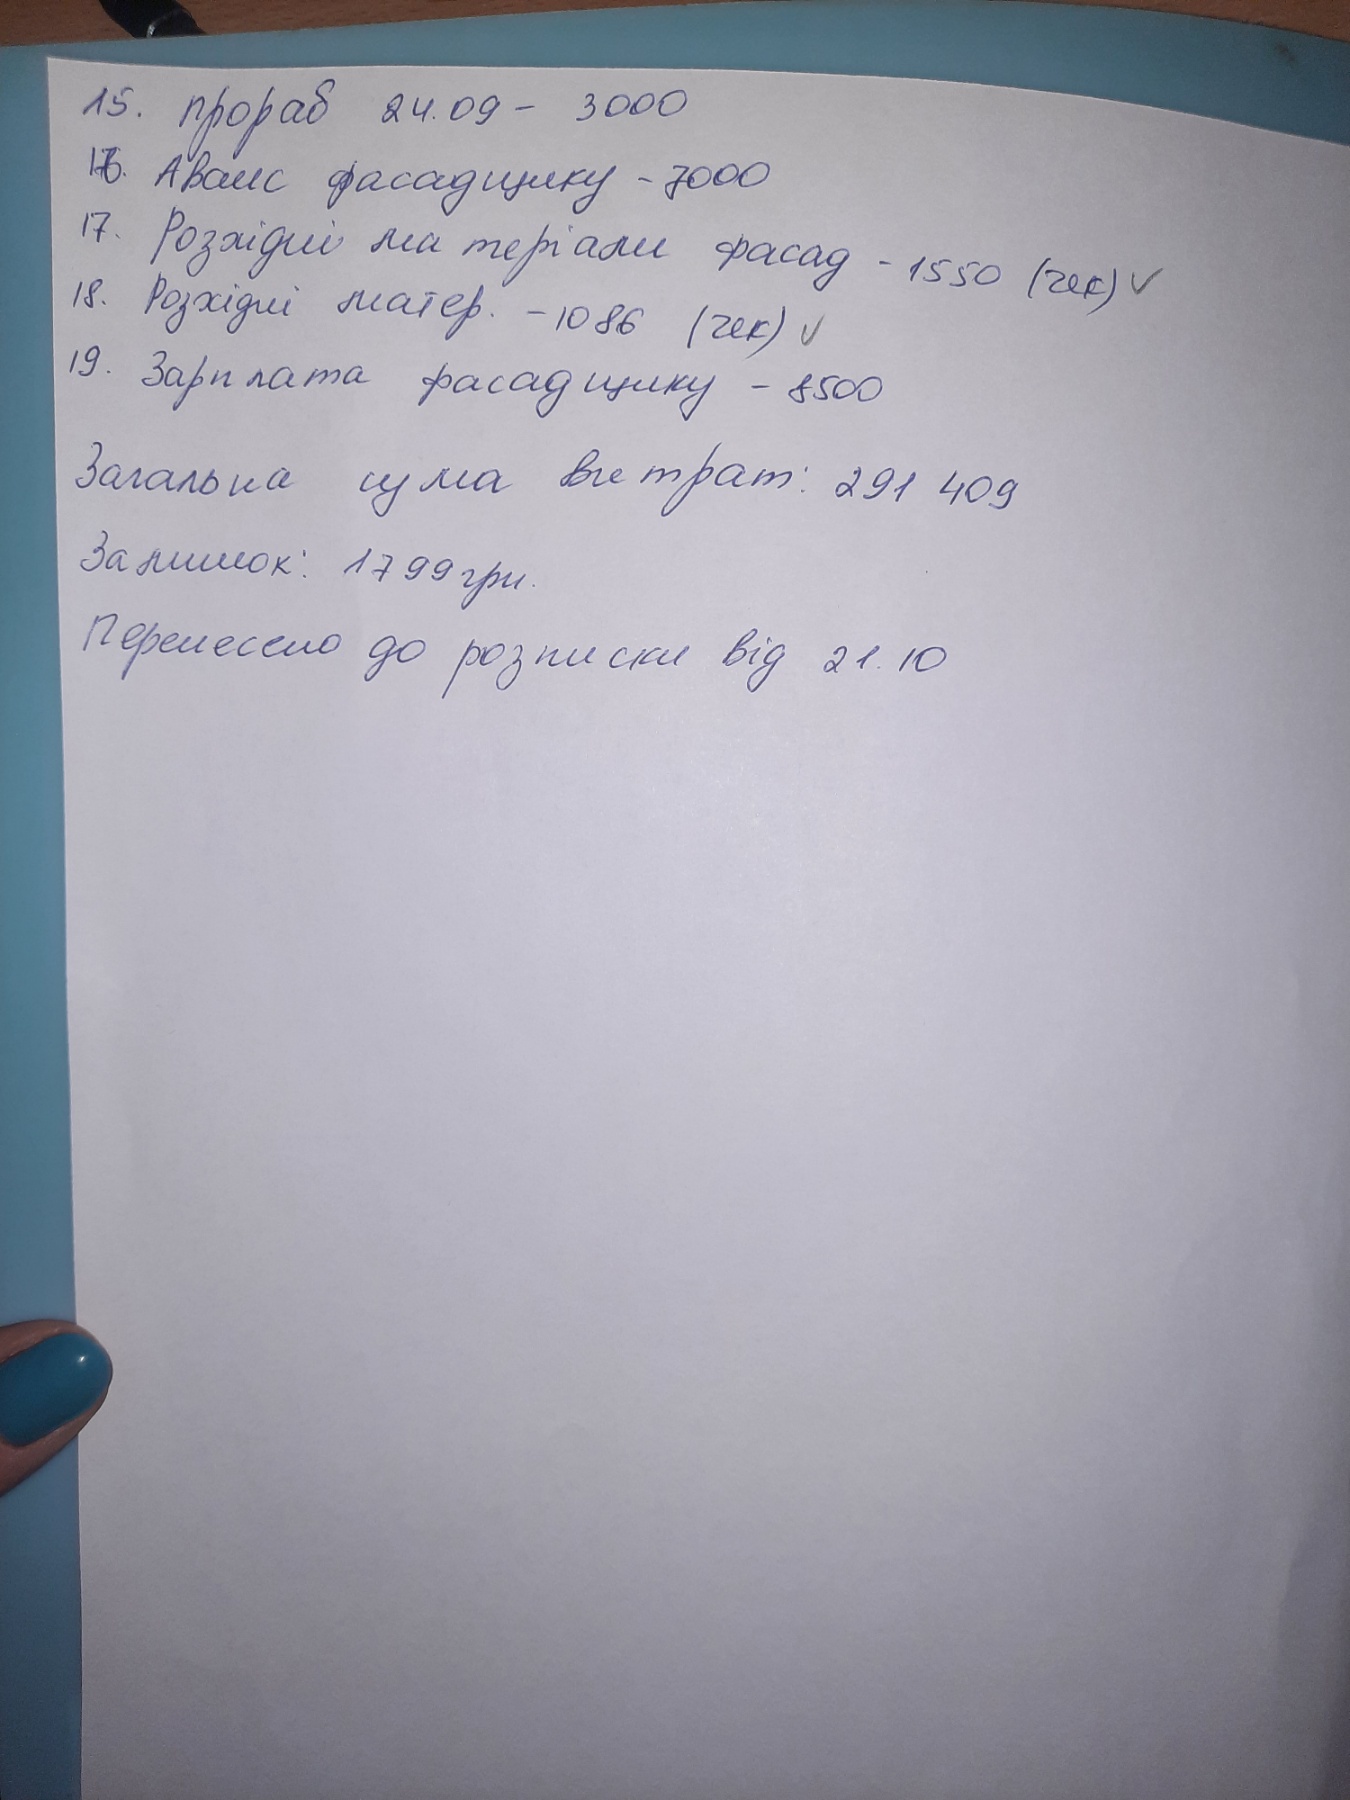 15. Прораб 24.09 - 3000
16. Аванс фасадщику - 7000
17. Розхідні матеріали фасад - 1550 (чек) ✓
18. Розхідні матер. - 1086 (чек) ✓
19. Зарплата фасадщику - 8500
Загальна сума витрат: 291 409
Залишок: 1799 грн.
Перенесено до розписки від 21.10